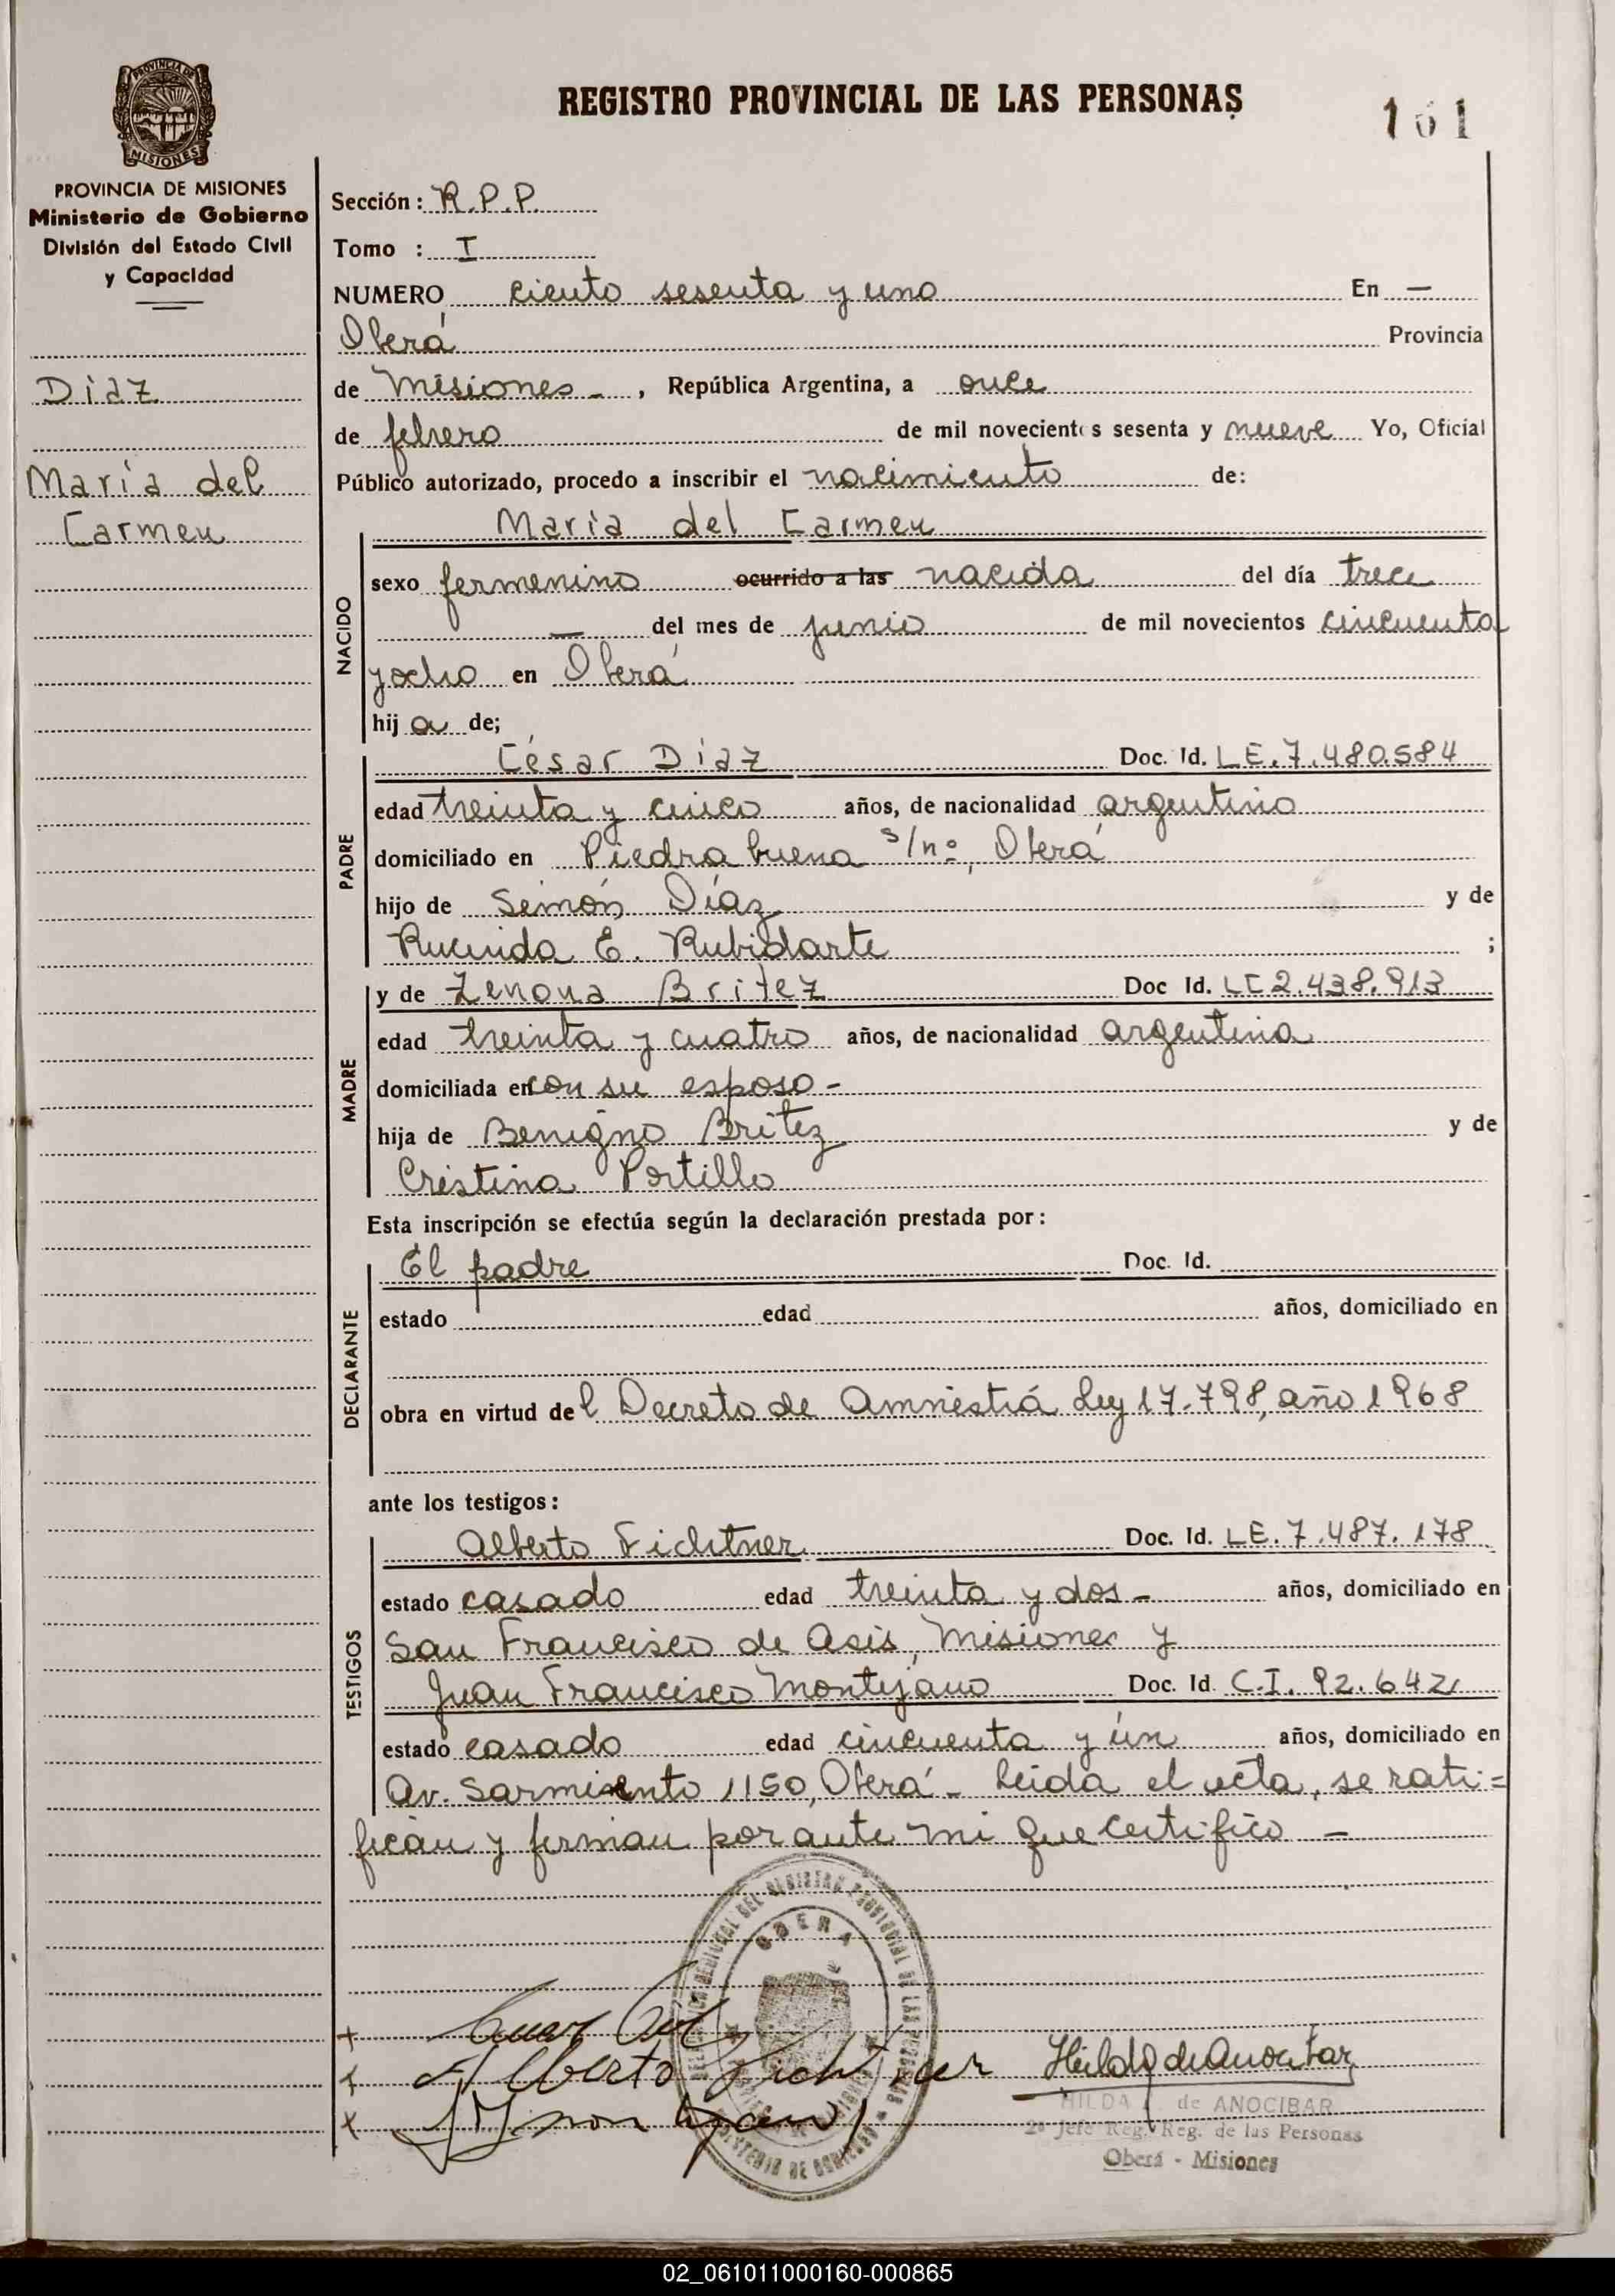 REGISTRO PROVINCIAL DE LAS PERSONAS
161
PROVINCIA DE MISIONES
PROVINCIA DE MISIONES
Ministerio de Gobierno
División del Estado Civil
y Capacidad
Díaz
María del
Carmen
Sección: R.P.P.
Tomo : I
NUMERO ciento sesenta y uno En —
Oberá Provincia
de Misiones - , República Argentina, a once
de febrero de mil novecientos sesenta y nueve Yo, Oficial
Público autorizado, procedo a inscribir el nacimiento de:
María del Carmen
NACIDO
sexo femenino ocurrido a las nacida del día trece
— del mes de junio de mil novecientos cincuenta
y ocho en Oberá
hij a de;
PADRE
César Díaz Doc. Id. LE.7.480.584
edad treinta y cinco años, de nacionalidad argentino
domiciliado en Piedra buena s/nº, Oberá
hijo de Simón Díaz y de
E. Rubidarte ;
MADRE
y de Zenona Britez Doc Id. LC 2.438.913
edad treinta y cuatro años, de nacionalidad argentina
domiciliada en con su esposo -
hija de Benigno Britez y de
Cristina Portillo
Esta inscripción se efectúa según la declaración prestada por:
DECLARANTE
El padre Doc. Id.
estado edad años, domiciliado en
obra en virtud de l Decreto de Amnestiá Ley 17.798, año 1968
ante los testigos:
TESTIGOS
Alberto Fichtner Doc. Id. LE. 7.487.178
estado casado edad treinta y dos - años, domiciliado en
San Francisco de Asis, Misiones y
Juan Francisco Montejano Doc. Id. C.I. 92.642
estado casado edad cincuenta y ún años, domiciliado en
Av. Sarmiento 1150, Oberá - Leida el acta, se rati=
fican y firman por ante mi que certifico -
OBERA
x
x Alberto Fichtner
x
Hilda de Anocibar
HILDA de ANOCIBAR
2º Jefe Reg. Reg. de las Personas
Oberá - Misiones
02_061011000160-000865